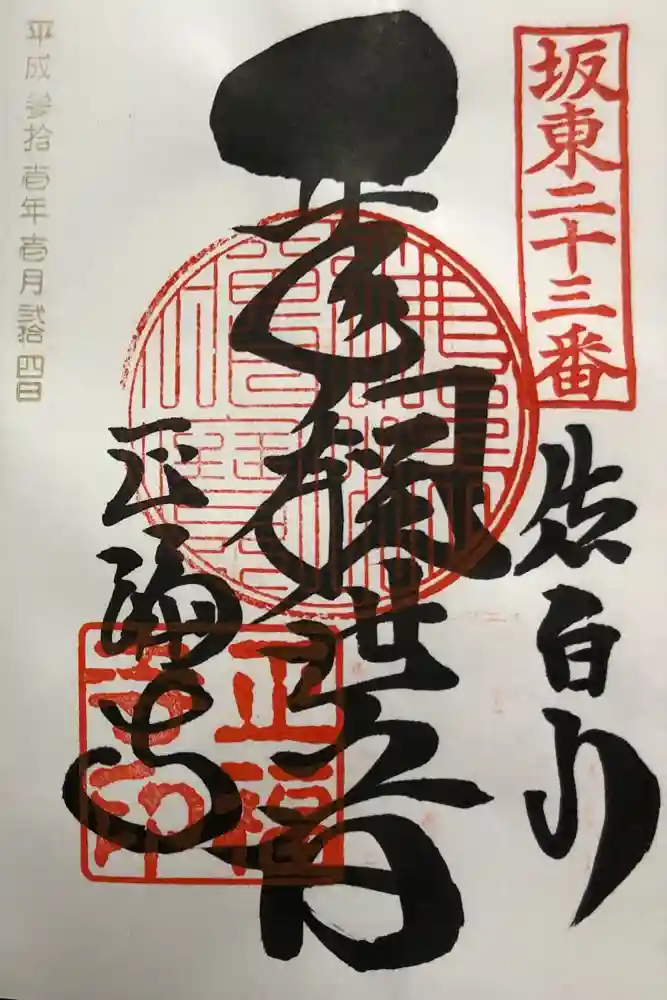 坂東二十三番
佐白山
観世音
正福寺
正福
寺印
平成参拾壱年壱月弐拾四日